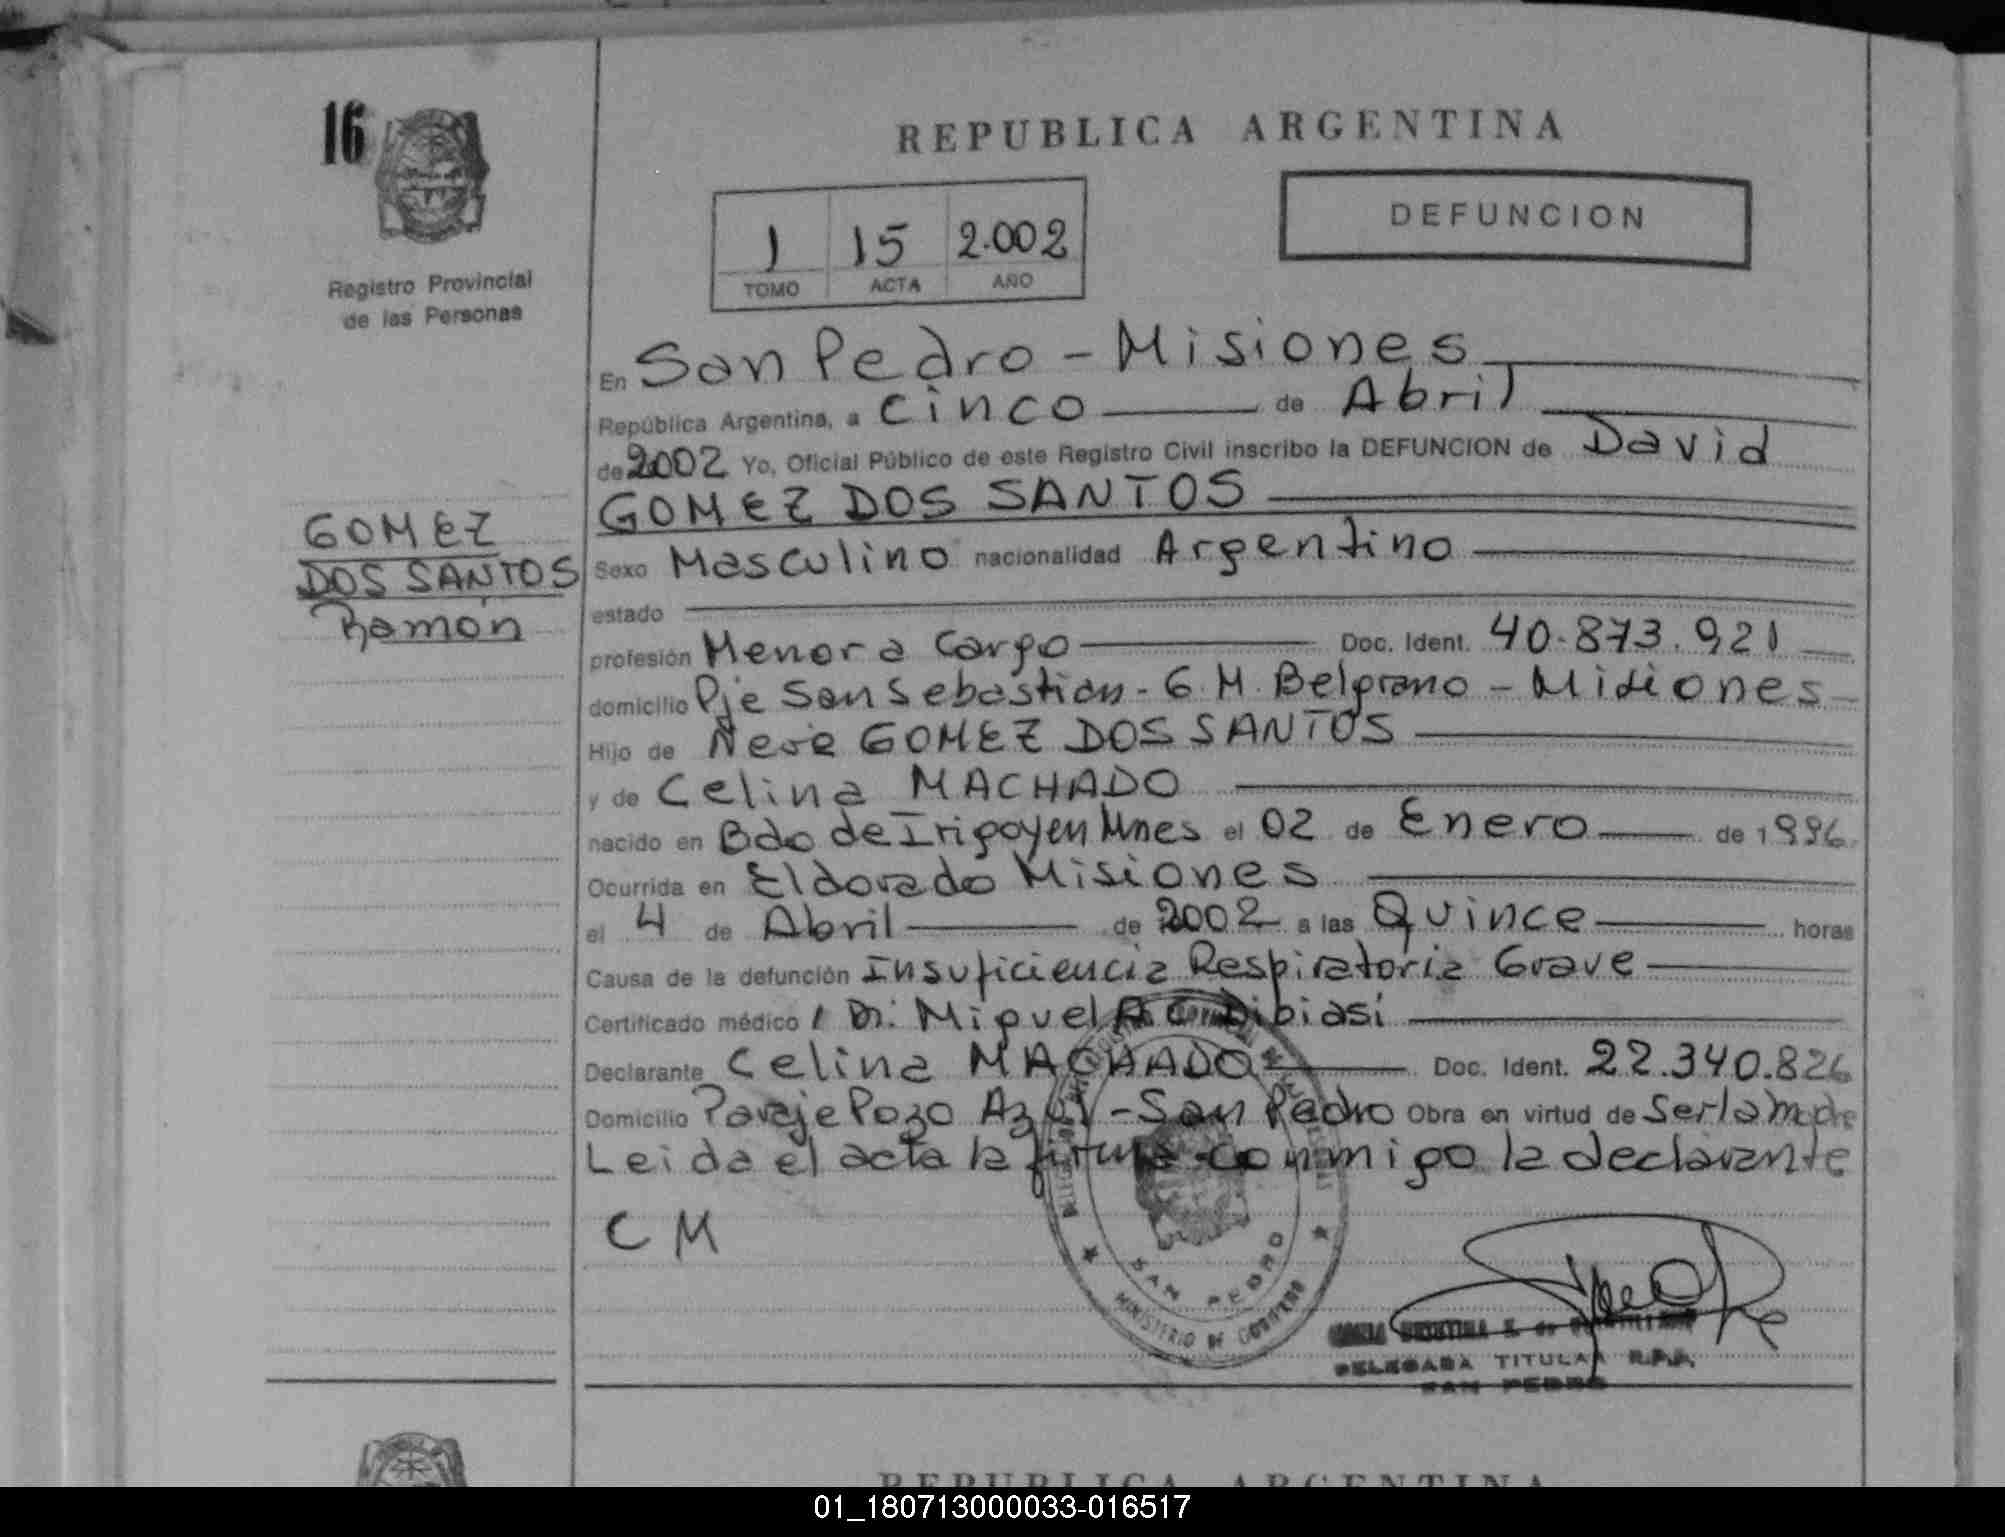 16
Registro Provincial
de las Personas
REPUBLICA ARGENTINA
1 15 2.002
TOMO ACTA AÑO
DEFUNCION
GOMEZ
DOS SANTOS
Ramón
En San Pedro - Misiones
República Argentina, a cinco de Abril
de 2002 Yo, Oficial Público de este Registro Civil inscribo la DEFUNCION de David
GOMEZ DOS SANTOS
Sexo Masculino nacionalidad Argentino
estado
profesión Menor a Cargo Doc. Ident. 40.873.921
domicilio Pje San Sebastian - G. M. Belgrano - Misiones
Hijo de GOMEZ DOS SANTOS
y de Celina MACHADO
nacido en Bdo de Irigoyen Mnes el 02 de Enero de 1996
Ocurrida en Eldorado Misiones
el 4 de Abril de 2002 a las Quince horas
Causa de la defunción Insuficiencia Respiratoria Grave
Certificado médico Dr. Miguel A C Dibiasi
Declarante Celina MACHADO Doc. Ident. 22.340.826
Domicilio Paraje Pozo Azul - San Pedro Obra en virtud de Ser la Madre
Leida el acta la firma conmigo la declarante
C M
SAN PEDRO
MINISTERIO DE GOBIERNO
DELEGADA TITULAR R.P.P.
SAN PEDRO
REPUBLICA ARGENTINA
01_180713000033-016517